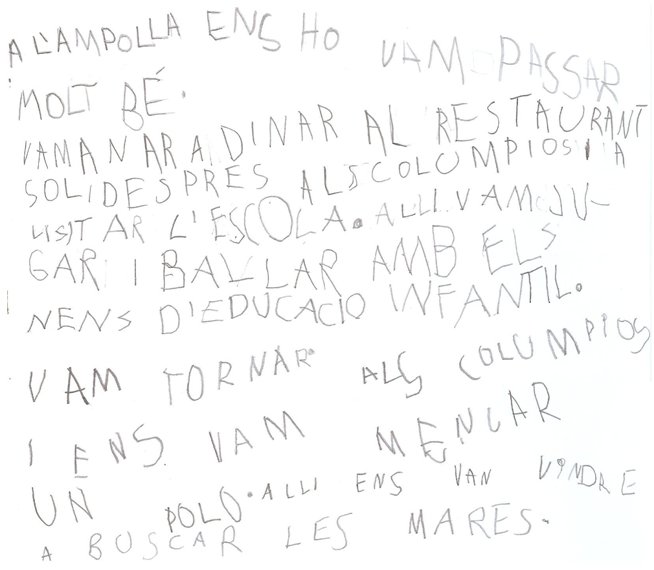 A L'AMPOLLA ENS HO VAM PASSAR
MOLT BÉ.
VAM ANAR A DINAR AL RESTAURANT
SOL I DESPRES ALS COLUMPIOS I A
VISIT AR L'ESCOLA. ALLI VAM JU-
GAR I BALLAR AMB ELS
NENS D'EDUCACIO INFANTIL.
VAM TORNAR ALS COLUMPIOS
I ENS VAM MENCAR
UN POLO. ALLI ENS VAN VINDRE
A BUSCAR LES MARES.